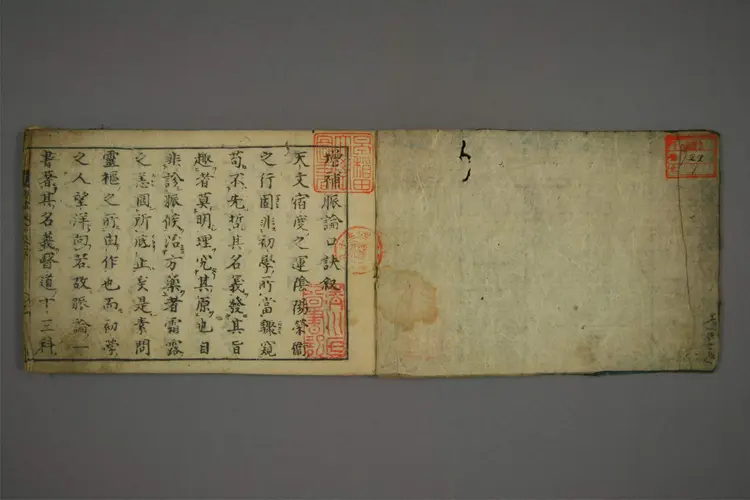 増補脈論口訣叙
天文宿度之運陰陽榮衞
之行固非初學所當驟窺
苟不先哲其名義發其旨
趣者莫明理究其原也目
非診脈候治方藥者霜露
之恙固所底止矣是素問
靈樞之所由作也而初學
之人望洋向若故脈論一
書著其名義醫道十三科